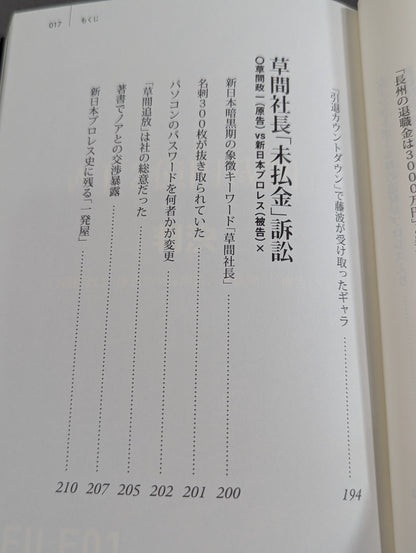 017 もくじ
「長州の退職金は３００万円」
「引退カウントダウン」で藤波が受け取ったギャラ 194
草間社長「未払金」訴訟
○草間政一（原告）vs新日本プロレス（被告）×
新日本暗黒期の象徴キーワード「草間社長」 200
名刺３００枚が抜き取られていた 201
パソコンのパスワードを何者かが変更 202
「草間追放」は社の総意だった 205
著書でノアとの交渉暴露 207
新日本プロレス史に残る「一発屋」 210